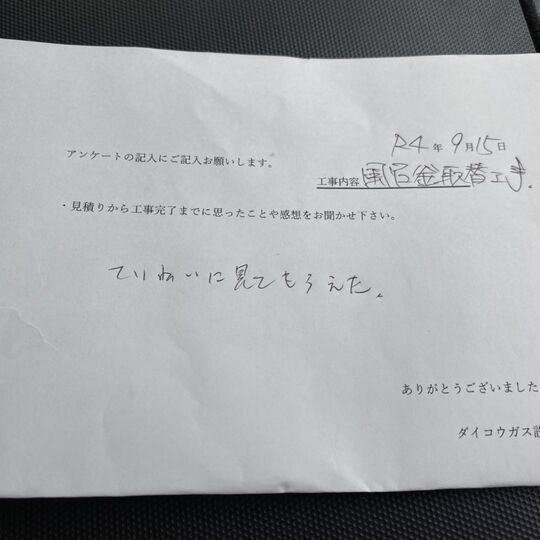 R4年9月15日
アンケートの記入にご記入お願いします。
工事内容 風呂釜取替工事.
・見積りから工事完了までに思ったことや感想をお聞かせ下さい。
ていねいに見てもらえた。
ありがとうございました
ダイコウガス設